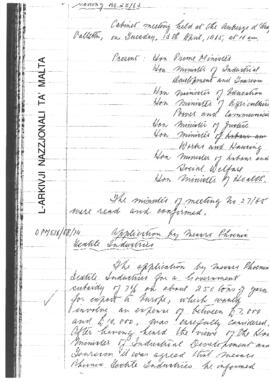 Meeting No. 28/65
Cabinet meeting held at the Auberge d'
Valletta, on Tuesday, 13th April, 1965, at 10 am
Present: Hon Prime Minister
Hon Minister of Industrial
Development and Tourism
Hon Minister of Education
Hon Minister of Agriculture
Power and Communications
Hon Minister of Justice
Hon Minister of
Works and Housing
Hon Minister of Labour and
Social Welfare
Hon Minister of Health.
L-ARKIVJI NAZZJONALI TA MALTA
The minutes of meeting No. 27/65
were read and confirmed.
Application by Messrs Phoenix
Textile Industries
The application by Messrs Phoenix
Textile Industries for a Government
subsidy of 7% on about 250 tons of yarn
for export to Europe, which would
involve an expense of between £7,000
and £10,000, was carefully considered.
After having heard the views of the Hon
Minister of Industrial Development and
Tourism it was agreed that Messrs
Phoenix Textile Industries be informed